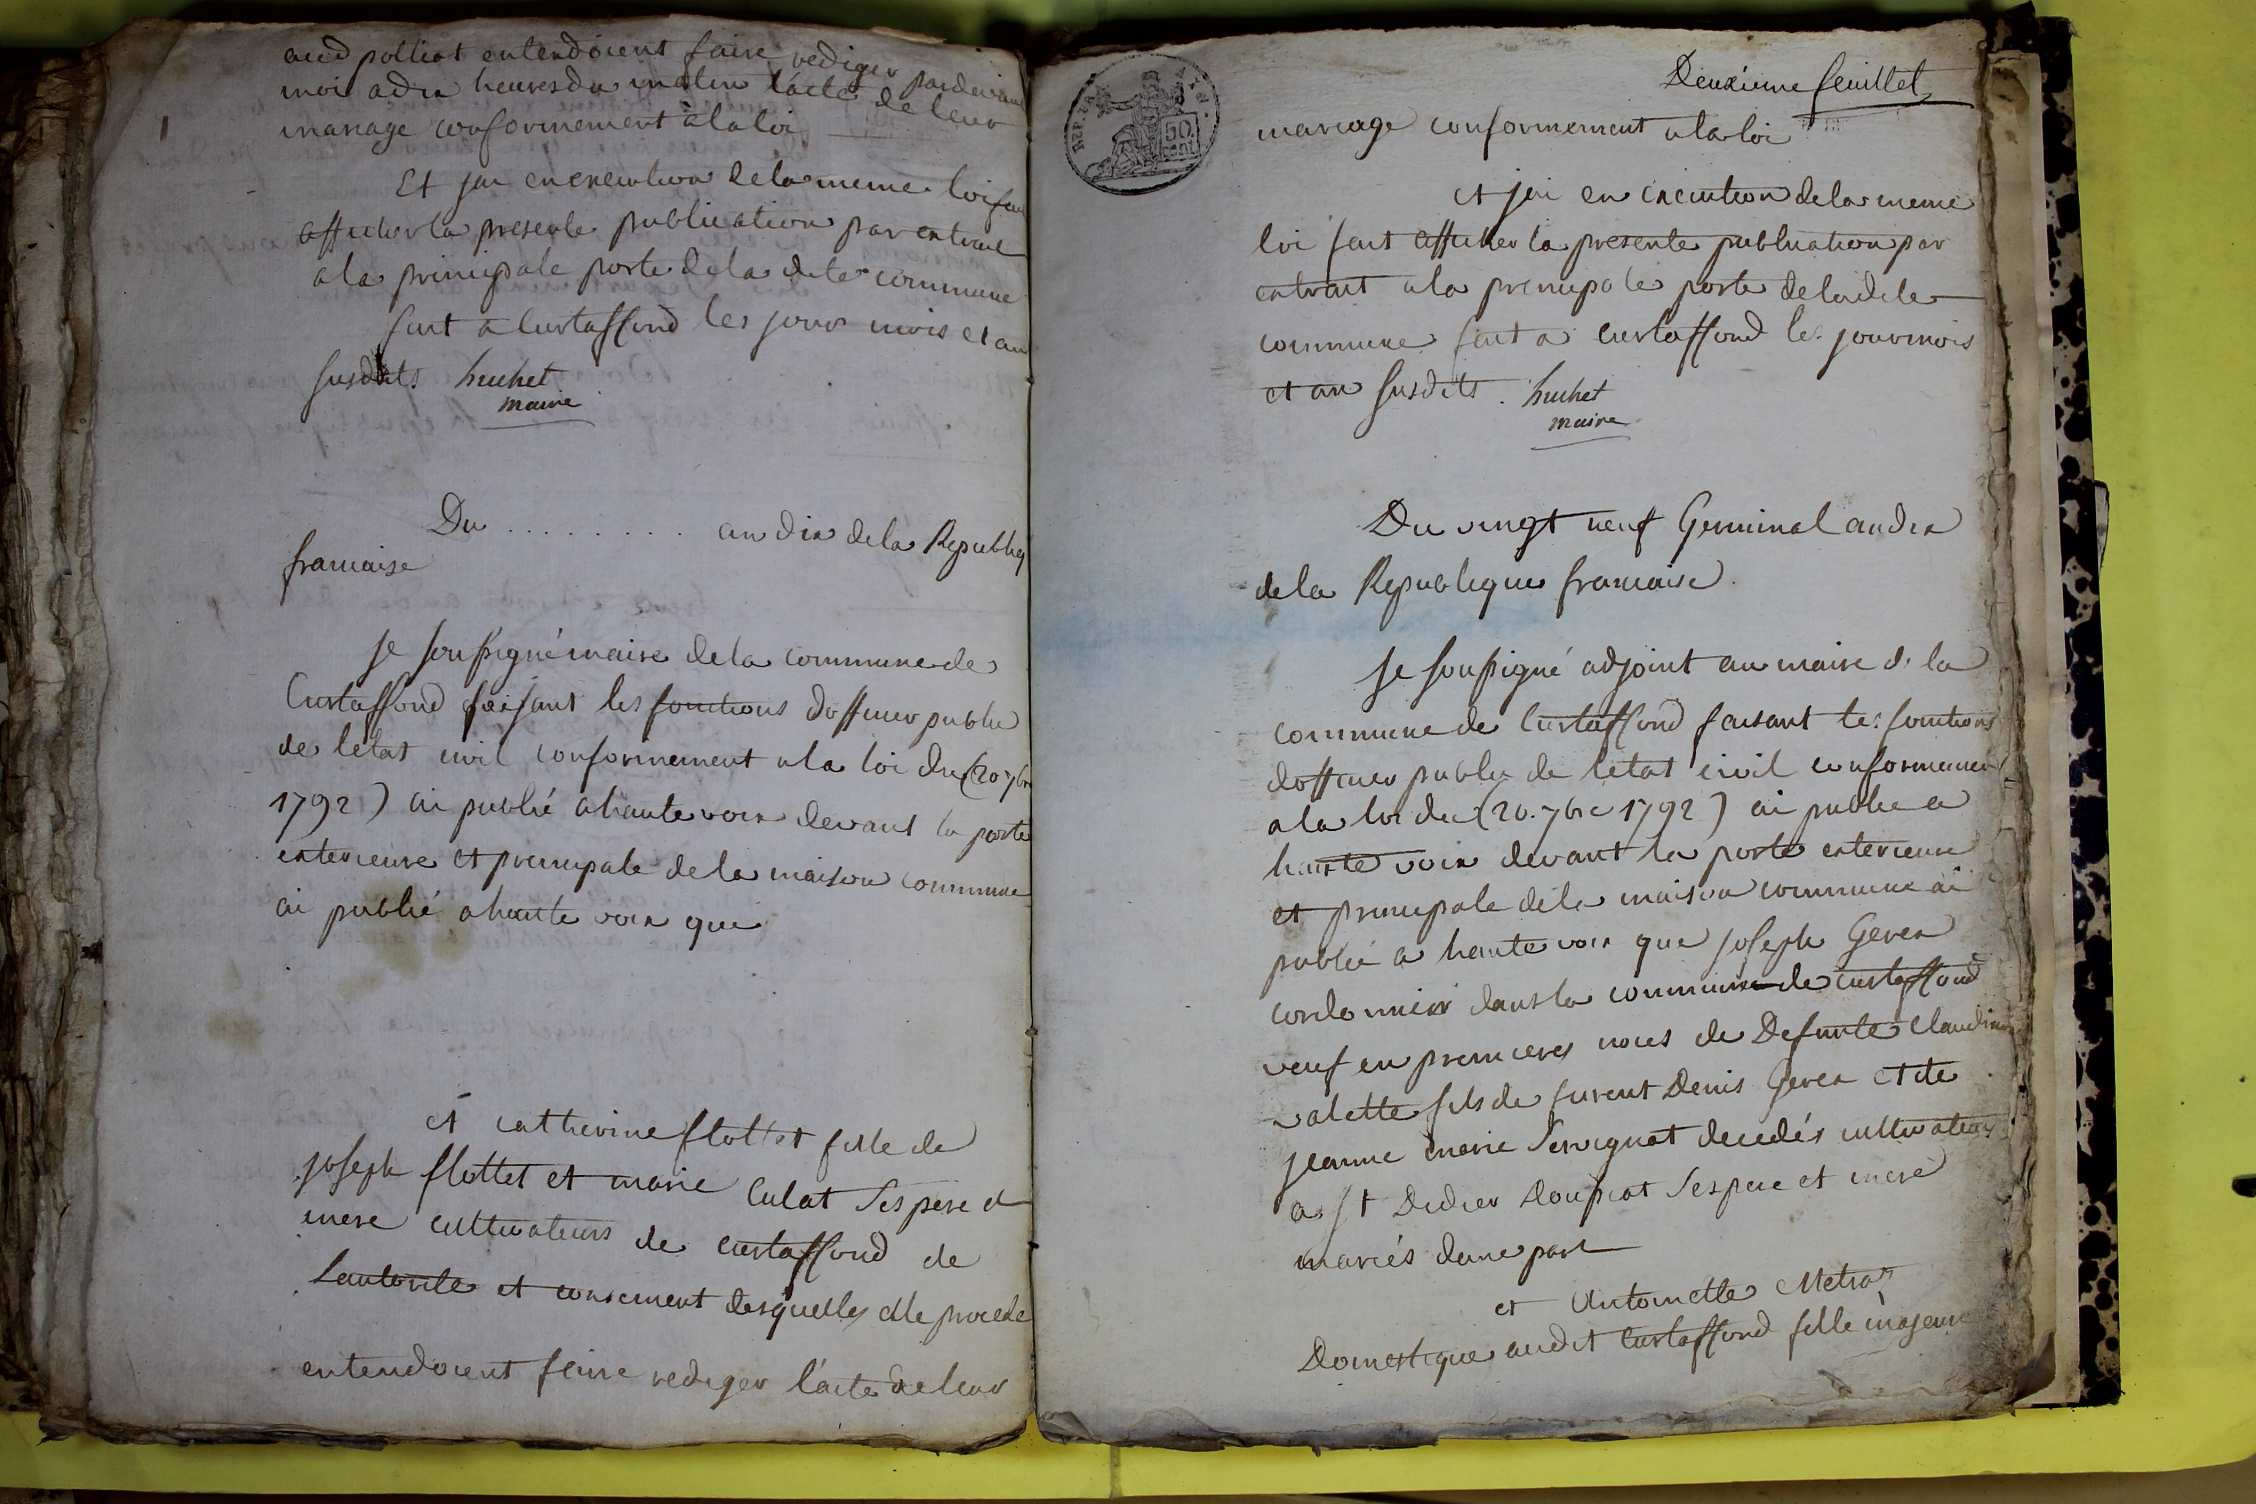 aud polliat entendoient faire rediger pardevant
moi a dix heures du matin l'acte de leur
mariage conformement à la loi
Et jai en execution de la meme loi fait
afficher la presente publication par extrait
a la principale porte de la dite commune
fait a Curtaffond les jour mois et an
susdits huchet
maire
Du ......... an dix de la Republiq
francaise
Je soussigné maire de la commune de
Curtaffond faisant les fonctions dofficier public
de letat civil conformement a la loi du (20 7br
1792) ai publié a haute voix devant la porte
exterieure et principale de la maison commune
ai publié a haute voix que
et catherine flottet fille de
joseph flottet et marie Culat ses pere et
mere cultivateurs de curtaffond de
lautorite et consement desquelles elle procede
entendoient faire rediger l'acte de leur
Deuxieme feuillet
REP. FRA
50
cent
mariage conformement a la loi
et jai en execution de la meme
loi fait afficher la presente publication par
extrait a la principale porte de la dite
commune fait a curtaffond les jour mois
et an susdits. huchet
maire
Du vingt neuf Germinal an dix
de la Republique francaise.
Je soussigné adjoint au maire de la
commune de Curtaffond faisant les fonctions
dofficier public de letat civil conformement
a la loi du (20. 7bre 1792) ai publie a
haute voix devant la porte exterieure
et principale de la maison commune ai
publié a haute voix que joseph Geven
cordonnier dans la commune de curtaffond
veuf en premieres noces de Defunte Claudine
valette fils de furent Denis Geven et de
jeanne marie Servignat decedés cultivateurs
a St Didier Doussiat ses pere et mere
mariés dune part
et Antoinette Metras
Domestique audit Curtaffond fille majeure